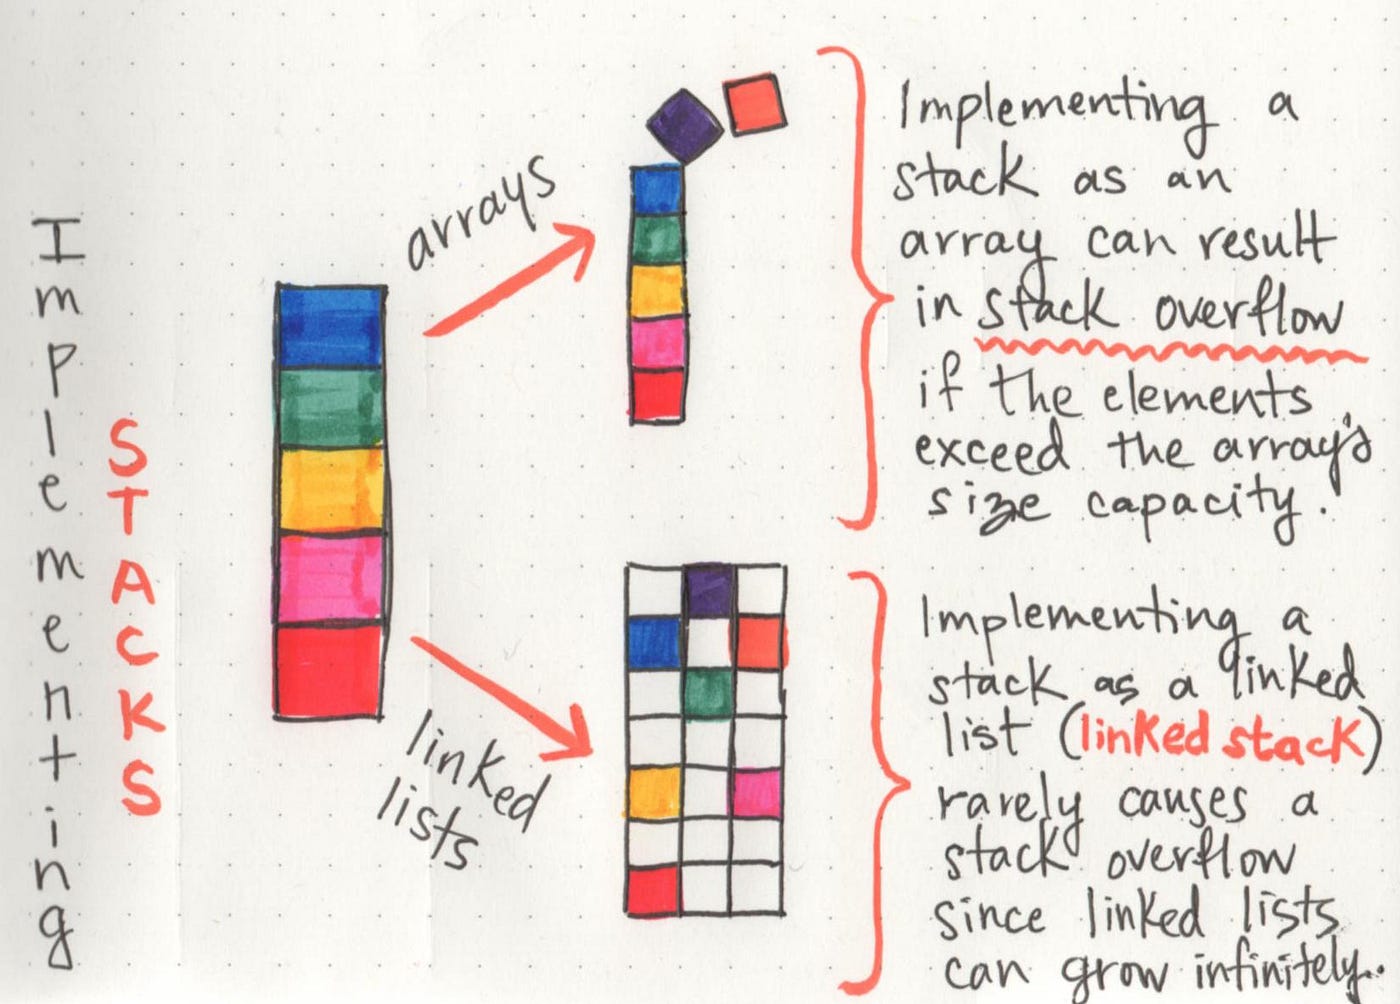 Implementing
STACKS
arrays
linked
lists
Implementing a
stack as an
array can result
in stack overflow
if the elements
exceed the array's
size capacity.
Implementing a
stack as a linked
list (linked stack)
rarely causes a
stack overflow
since linked lists
can grow infinitely..